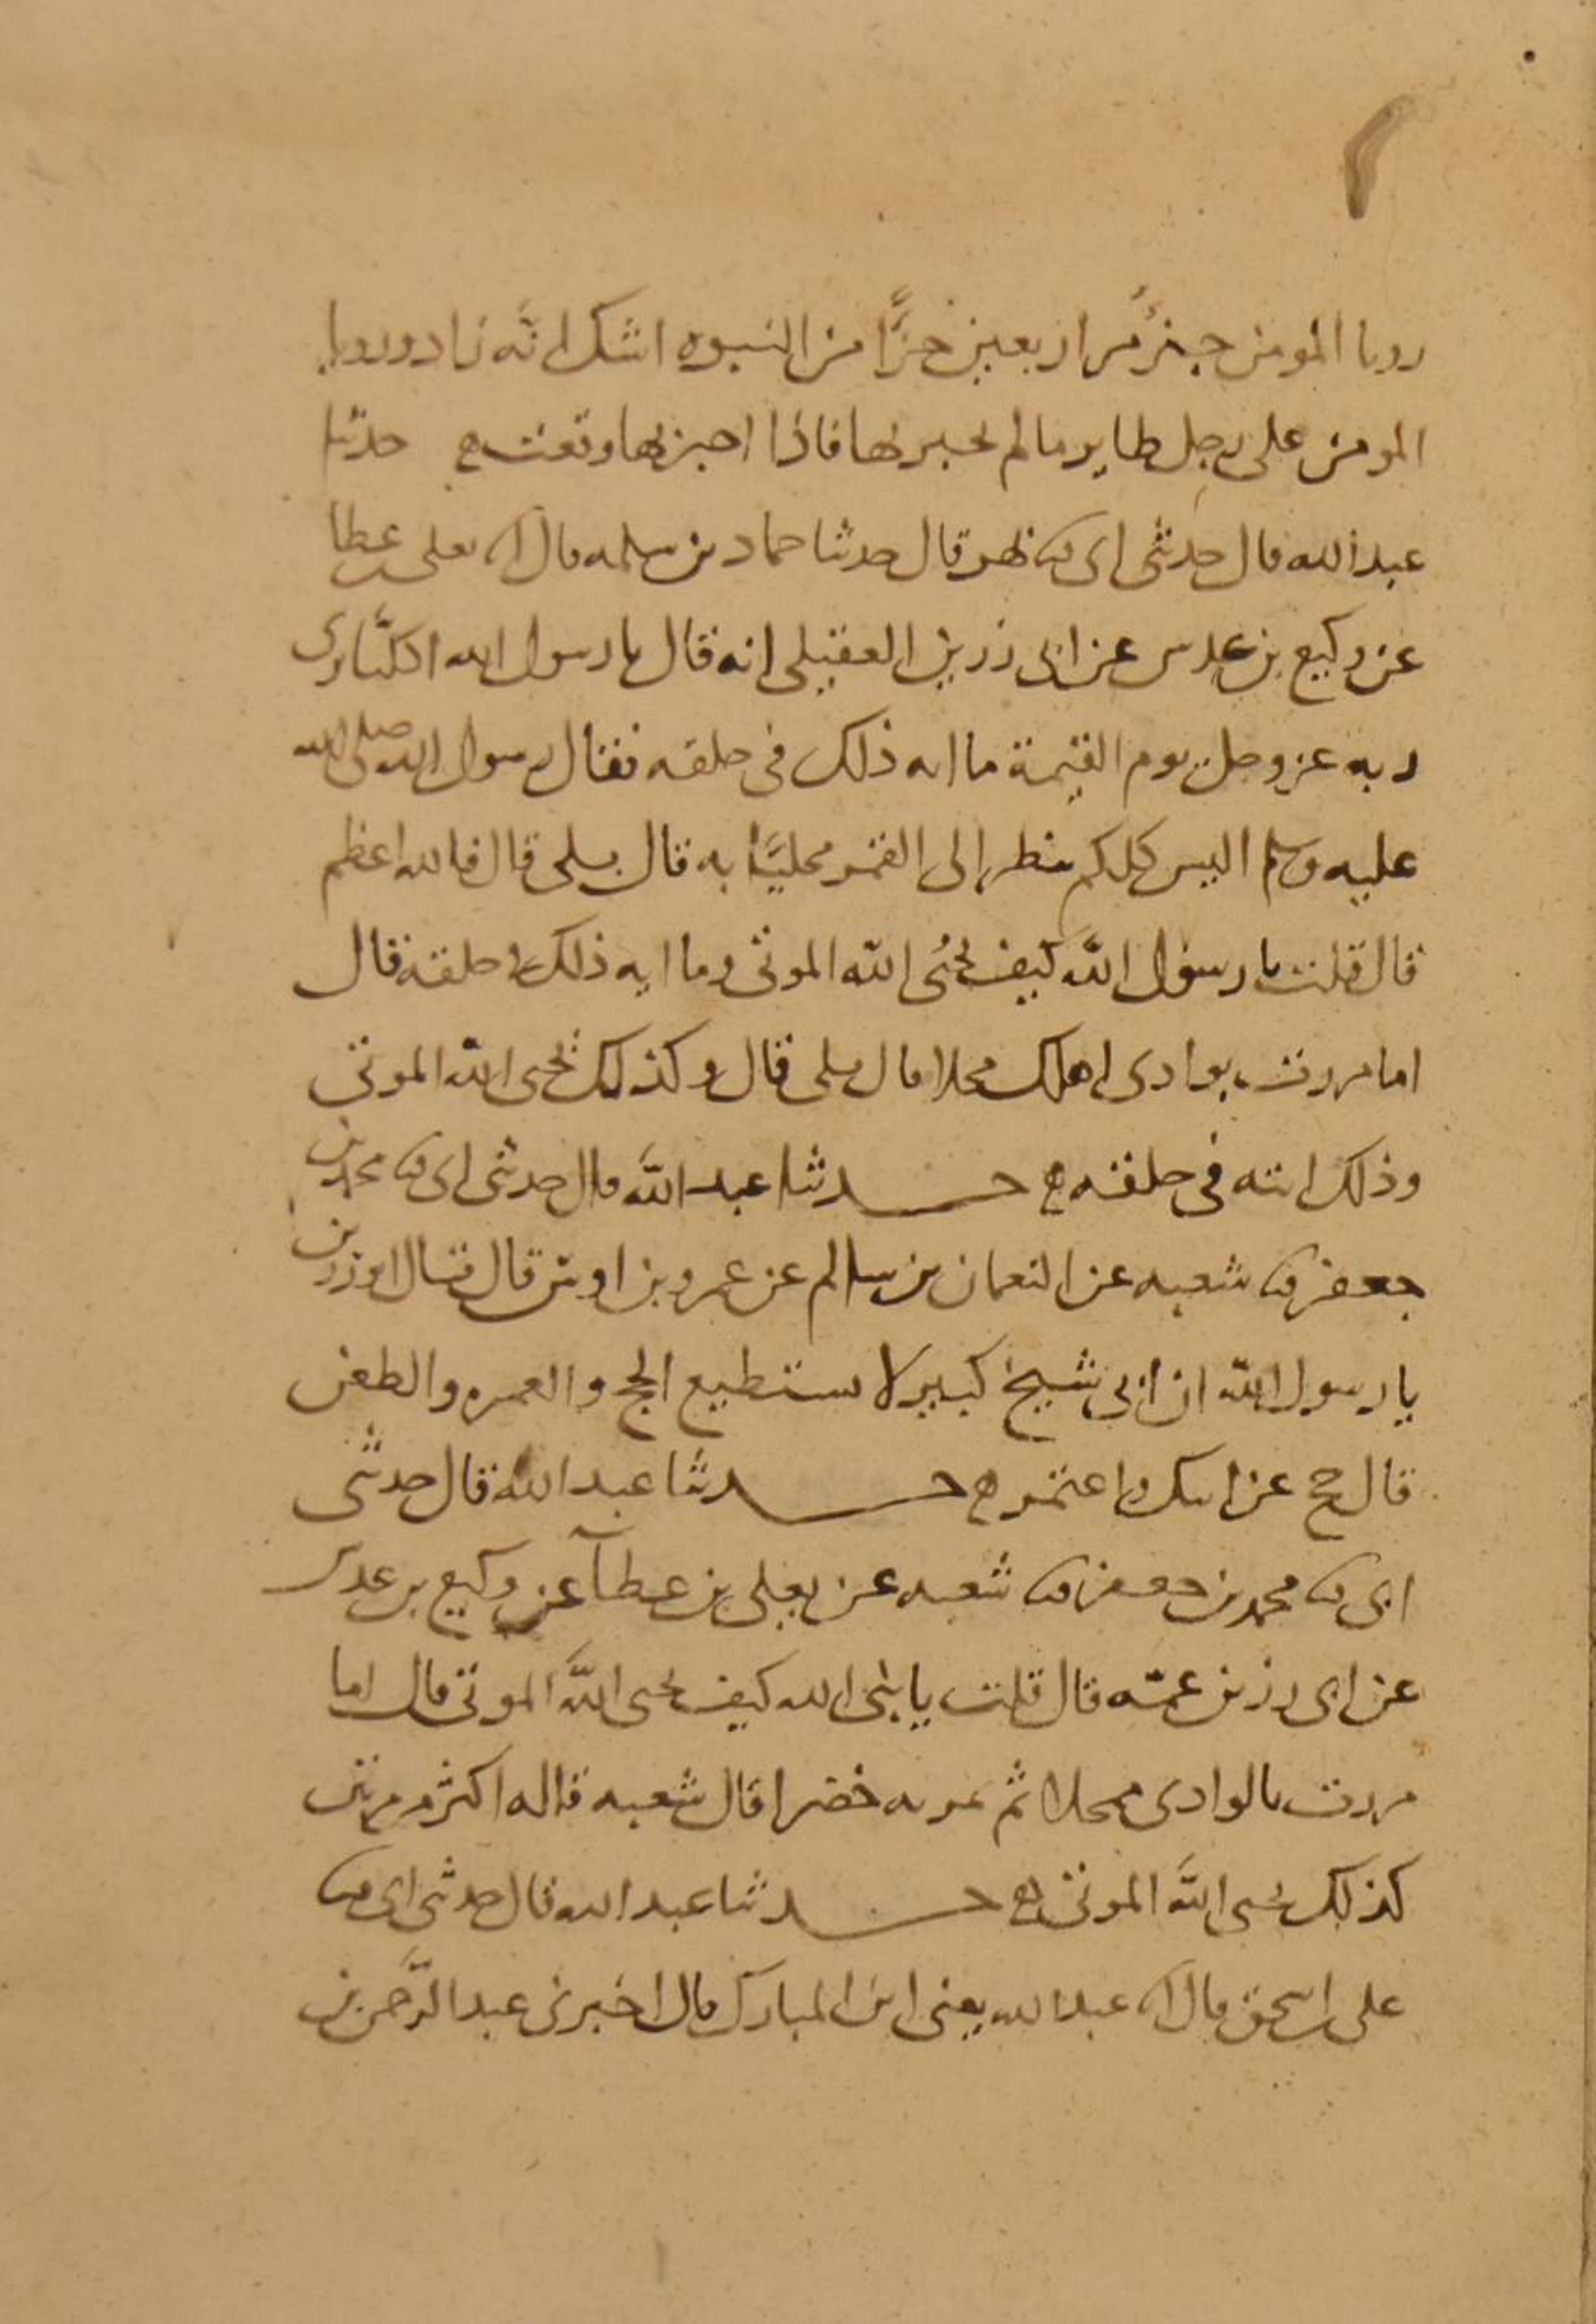 رويا المومن جزؤ من اربعين جزًّا من النبوه اشك انَّه قال ورويا
المومن على رجل طاير مالم يخبر بها فاذا اخبر بها وقعت حدثنا
عبد الله قال حدثنى ابى ثنا بهز قال حدثنا حماد بن سلمه قال انا يعلى بن عطا
عن وكيع بن عدس عن ابى رزين العقيلى انه قال يا رسول الله اكلنا يرى
ربه عز وجل يوم القيمة ما ايه ذلك فى خلقه فقال رسول الله صلى الله
عليه وسلم اليس كلكم ينظر الى القمر مخليًا به قال بلى قال فالله اعظم
قال قلت يا رسول الله كيف يحيى الله الموتى وما ايه ذلك فى خلقه قال
اما مررت بوادى اهلك محلا قال بلى قال وكذلك يحيى الله الموتى
وذلك ايته فى خلقه حدثنا عبد الله قال حدثنى ابى ثنا محمد بن
جعفر ثنا شعبه عن النعمان بن سالم عن عمرو بن اوس قال قال ابو رزين
يا رسول الله ان ابى شيخ كبير لا يستطيع الحج والعمره والظعن
قال حج عن ابيك واعتمر حدثنا عبد الله قال حدثنى
ابى ثنا محمد بن جعفر ثنا شعبه عن يعلى بن عطآ عن وكيع بن عدس
عن ابى رزين عمّه قال قلت يا نبى الله كيف يحيى الله الموتى قال اما
مررت بالوادى ممحلا ثم تمر به خضرا قال شعبه قاله اكثر من مرتين
كذلك يحيى الله الموتى حدثنا عبد الله قال حدثنى ابى ثنا
على بن اسحق قال انا عبد الله يعنى ابن المبارك قال اخبرنى عبد الرَّحمن بن